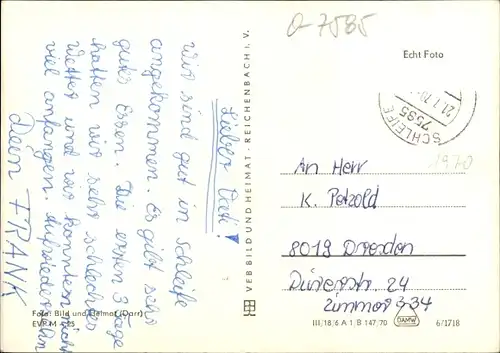 Lieber Vati!
wir sind gut in Schleife
angekommen. Es gibt sehr
gutes Essen. Die ersten 3 Tage
hatten wir sehr schlechtes
Wetter und wir konnten nicht
viel anfangen. Aufwiedersehn
Dein FRANK
Foto: Bild und Heimat (Darr)
VEB BILD UND HEIMAT · REICHENBACH i. V.
a-7585
Echt Foto
SCHLEIFE
7595
1970
An Herr
K. Petzold
8019 Dresden
Dürerstr. 24
Zimmer 334
III/18/6 A 1 B 147/70
DAMW
6/1718